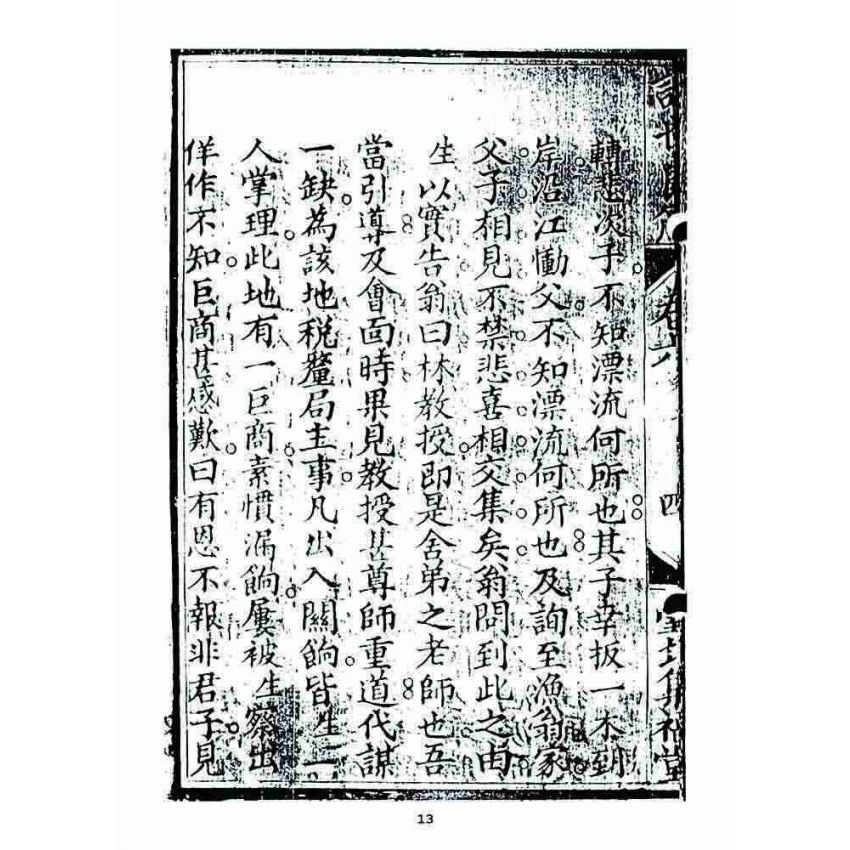 轉悲次子不知漂流何所也其子幸扳一木到
岸沿江慟父不知漂流何所也及詢至漁翁家
父子相見不禁悲喜相交集矣翁問到此之由
生以實告翁曰林教授即是舍弟之老師也吾
當引導及會面時果見教授甚尊師重道代謀
一缺為該地税釐局主事凡出入關餉皆生一
人掌理此地有一巨商素慣漏餉屢被生察出
佯作不知巨商甚感歎曰有恩不報非君子見
卷六
四
13